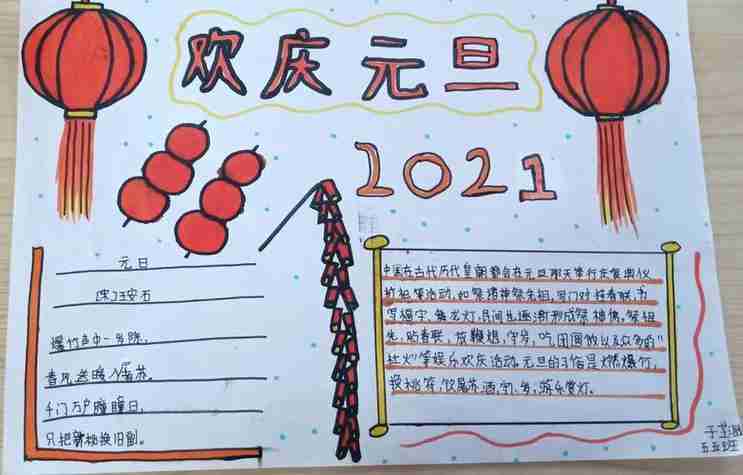 欢庆元旦
2021
元日
[宋]王安石
爆竹声中一岁除,
春风送暖入屠苏。
千门万户曈曈日,
只把新桃换旧副。
中国在古代历代皇朝都会在元旦那天举行庆贺典仪
祈祀等活动,如祭诸神祭先祖,写门对挂春联,书
写福字、舞龙灯,民间也逐渐形成祭神佛、祭祖
先、贴春联、放鞭炮、守岁、吃团圆饭以及众多的"
社火"等娱乐欢庆活动。元旦的习俗是燃爆竹,
投秘符,饮屠苏酒,
五五班